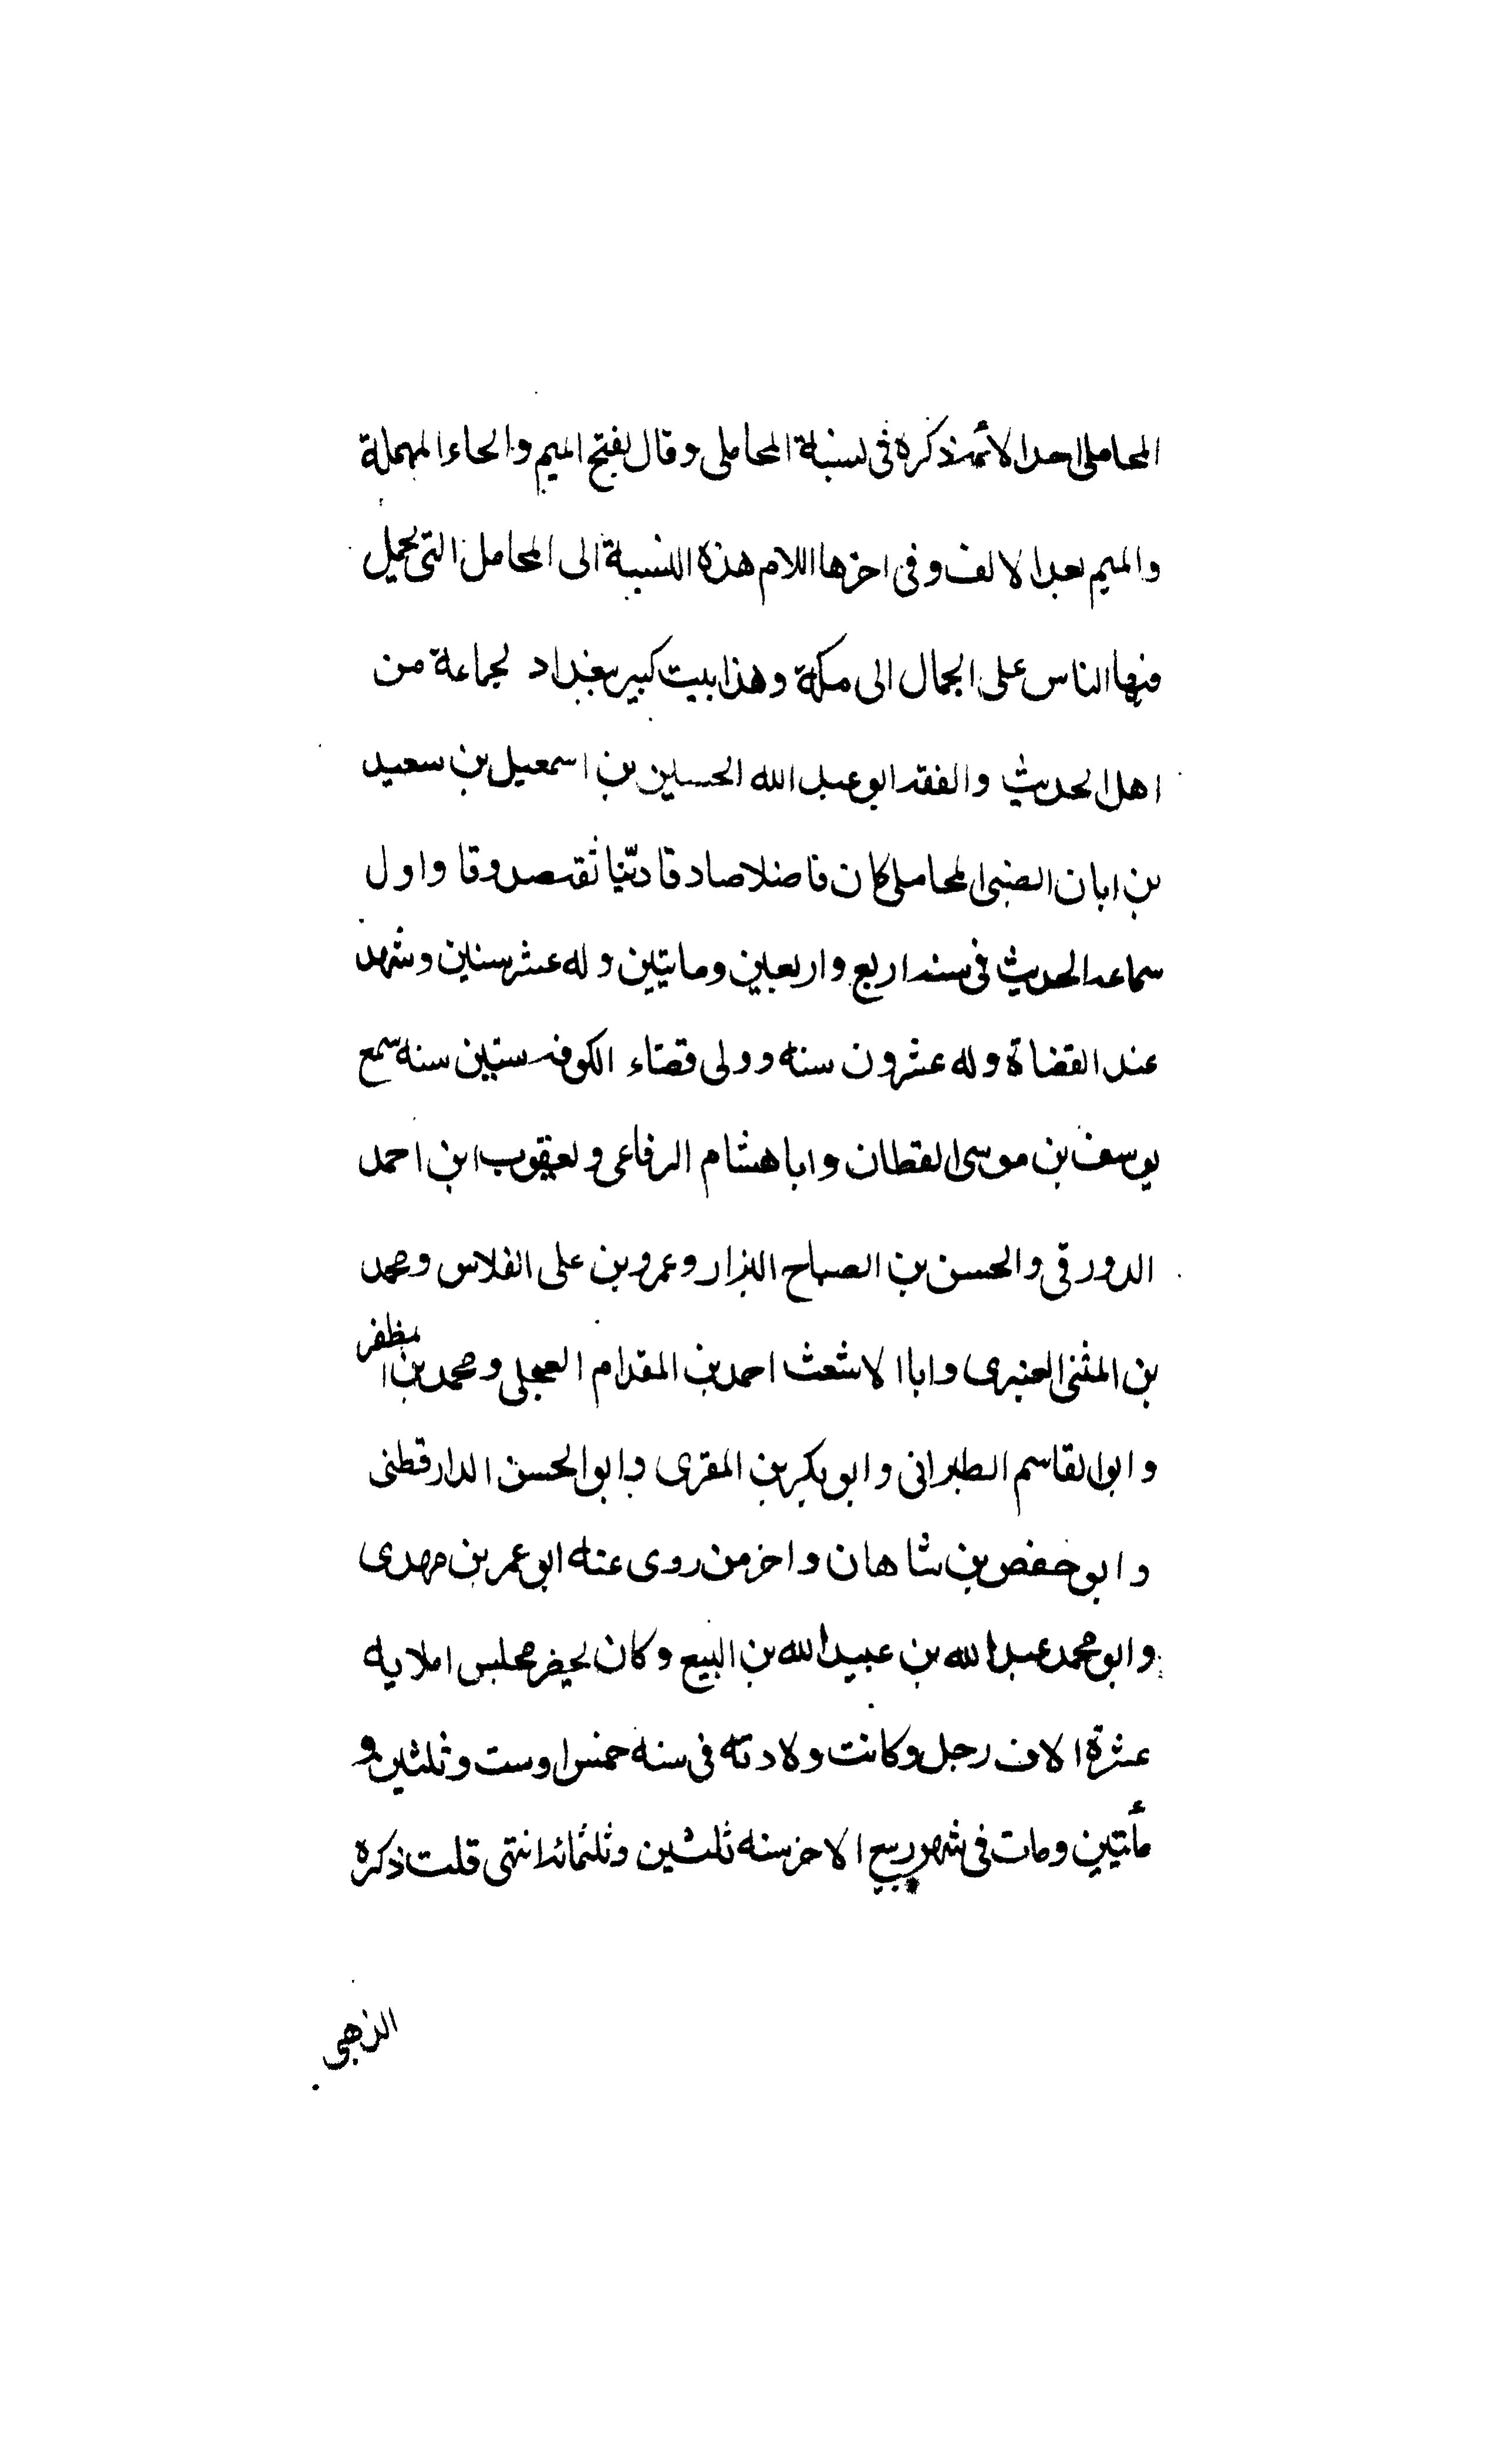 المحاملى احد الأئمة ذكره فى نسبة المحاملى وقال بفتح الميم والحاء المهملة
والميم بعد الالف وفى اخرها اللام هذه النسبة الى المحامل التى يحمل
فيها الناس على الجمال الى مكة وهذا بيت كبير ببغداد لجماعة من
اهل الحديث والفقه ابو عبد الله الحسين بن اسمعيل بن سعيد
بن ابان الضبى المحاملى كان فاضلا صادقا ديّنا ثقة صدوقا واول
سماعه الحديث فى سنة اربع واربعين ومايتين وله عشر سنين وشهد
عند القضاة وله عشرون سنه وولى قضاء الكوفه ستين سنه سمع
يوسف بن موسى القطان وابا هشام الرفاعى ويعقوب ابن احمد
الدورقى والحسن بن الصباح البزار وعمرو بن على الفلاس ومحمد
بن المثنى العنبرى وابا الاشعث احمد بن المقدام العجلى ومحمد بن المظفر
وابو القاسم الطبرانى وابو بكر بن المقرى وابو الحسن الدارقطنى
وابو حفص بن شاهان واخر من روى عنه ابو عمر بن مهدى
وابو محمد عبد الله بن عبيد الله بن البيع وكان يحضر مجلس املايه
عشرة الاف رجل وكانت ولادته فى سنه خمس اوست وثلثين و
مأتين ومات فى شهر ربيع الاخر سنه ثلثين وثلثمائة انتهى قلت ذكره
الذهبى